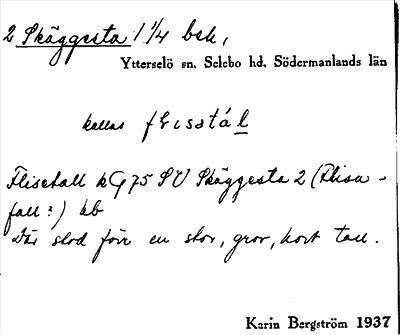 2 Skäggesta 1 1/4 bsk,
Ytterselö sn. Selebo hd. Södermanlands län
kallas
Flisetall kG 75 SV Skäggesta 2 (Flisa-
fall?) kb
Där stod förr en stor, grov, kort tall.
Karin Bergström 1937